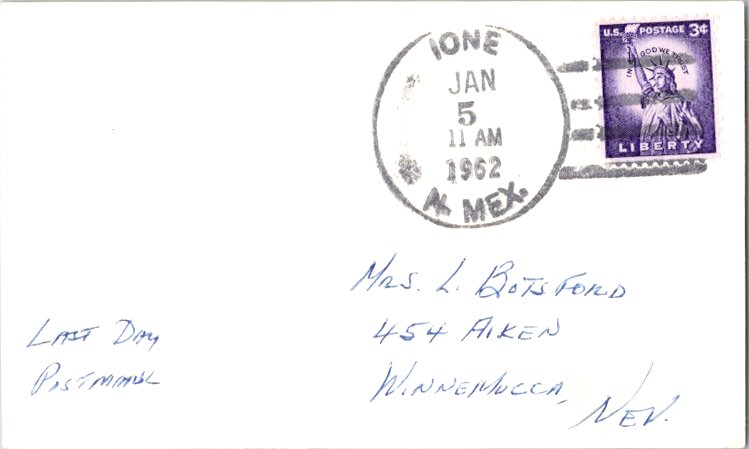 IONE
JAN
5
11 AM
1962
N. MEX.
U.S. POSTAGE 3¢
IN GOD WE TRUST
LIBERTY
MRS. L. BOTSFORD
454 AIKEN
WINNEMUCCA,
NEV.
LAST DAY
POSTMARK